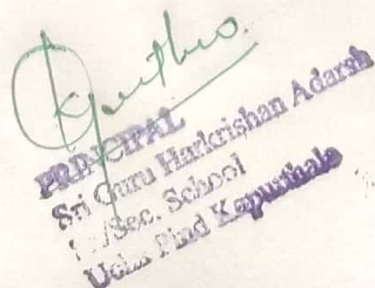 PRINCIPAL
Sri Guru Harkrishan Adarsh
/Sec. School
Ucha Pind Kapurthala